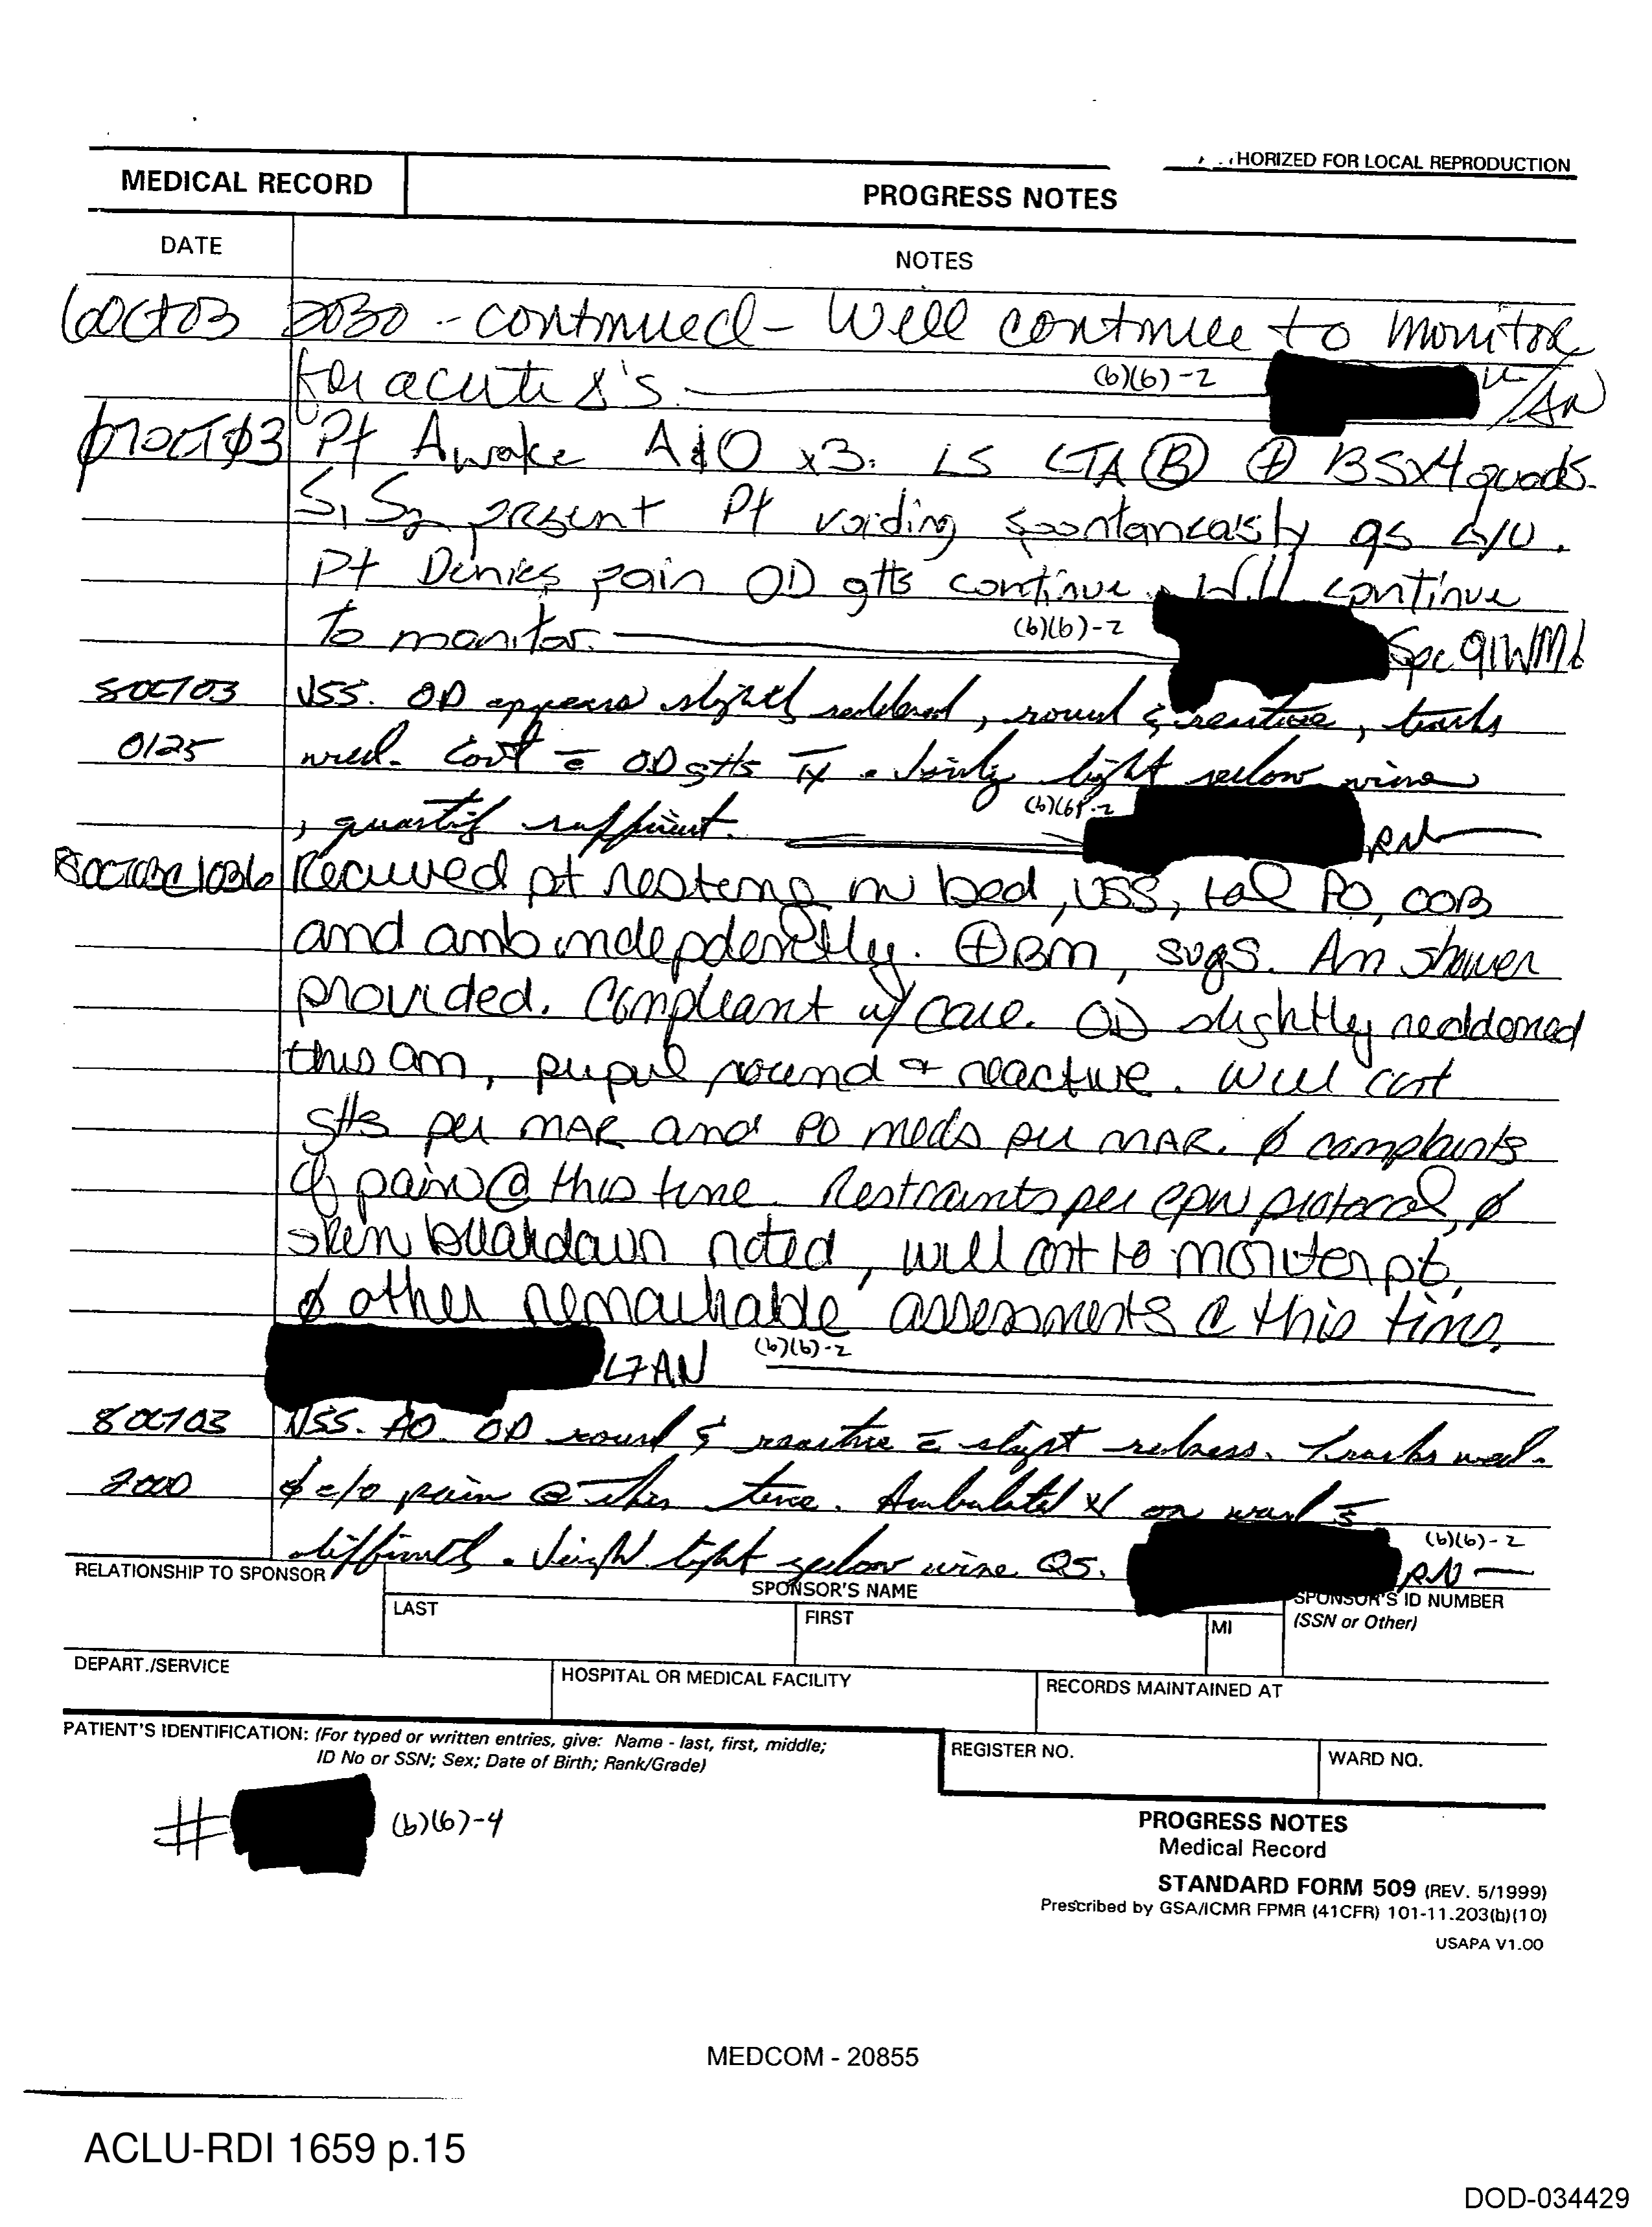 HORIZED FOR LOCAL REPRODUCTION
MEDICAL RECORD
PROGRESS NOTES
DATE
NOTES
6Oct03 2030 - continued - Will continue to monitor
for acute Δ's. (b)(6)-2 /AN
07OCT03 Pt Awake A&O x3. LS CTA Ⓑ ⊕ BSx4 quads.
S1 S2 present Pt voiding spontaneasly qs
Pt Denies pain OD gtts continue. Will continue
to monitor. (b)(6)-2 Spc 91WM6
8OCT03 VSS. OD appears slightly reddened, round & reactive, tracks
0125 well. Cont c̄ OD gtts Tx. light yellow urine
, quantity sufficient. (b)(6)-2 RN
8OCT03@1036 Received pt resting in bed, VSS, tol PO, OOB
and amb indepdently. ⊕BM, Am shower
provided. Compliant w/ care. OD slightly reddened
this am, pupil round + reactive. Will cont
gtts per MAR and PO meds per MAR. ∅ complaints
of pain @ this time. Restraints per EPW protocol, ∅
skin breakdown noted, will cont to monitor pt,
∅ other remarkable assessments @ this time.
LTAN (b)(6)-2
8OCT03 VSS. AO. OD round & reactive c̄ slight redness. Tracks well.
2000 ∅ c/o pain @ this time. Ambulated x1 on ward s̄
difficulty. light yellow urine QS. (b)(6)-2 RN
RELATIONSHIP TO SPONSOR
SPONSOR'S NAME
SPONSOR'S ID NUMBER
LAST
FIRST
MI
(SSN or Other)
DEPART./SERVICE
HOSPITAL OR MEDICAL FACILITY
RECORDS MAINTAINED AT
PATIENT'S IDENTIFICATION: (For typed or written entries, give: Name - last, first, middle;
ID No or SSN; Sex; Date of Birth; Rank/Grade)
REGISTER NO.
WARD NO.
# (b)(6)-4
PROGRESS NOTES
Medical Record
STANDARD FORM 509 (REV. 5/1999)
Prescribed by GSA/ICMR FPMR (41CFR) 101-11.203(b)(10)
USAPA V1.00
MEDCOM - 20855
ACLU-RDI 1659 p.15
DOD-034429